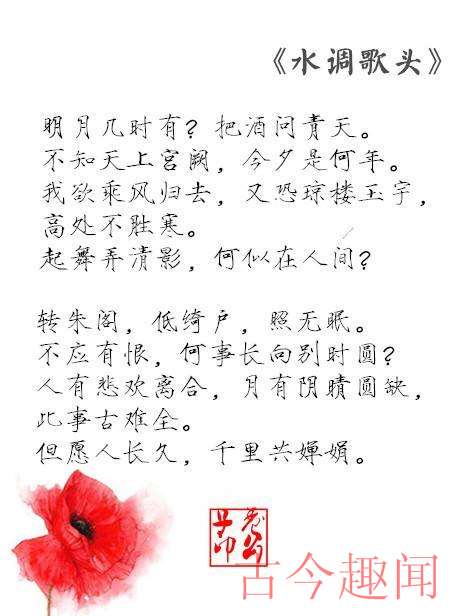 《水调歌头》
明月几时有？把酒问青天。
不知天上宫阙，今夕是何年。
我欲乘风归去，又恐琼楼玉宇，
高处不胜寒。
起舞弄清影，何似在人间？
转朱阁，低绮户，照无眠。
不应有恨，何事长向别时圆？
人有悲欢离合，月有阴晴圆缺，
此事古难全。
但愿人长久，千里共婵娟。
古今趣闻